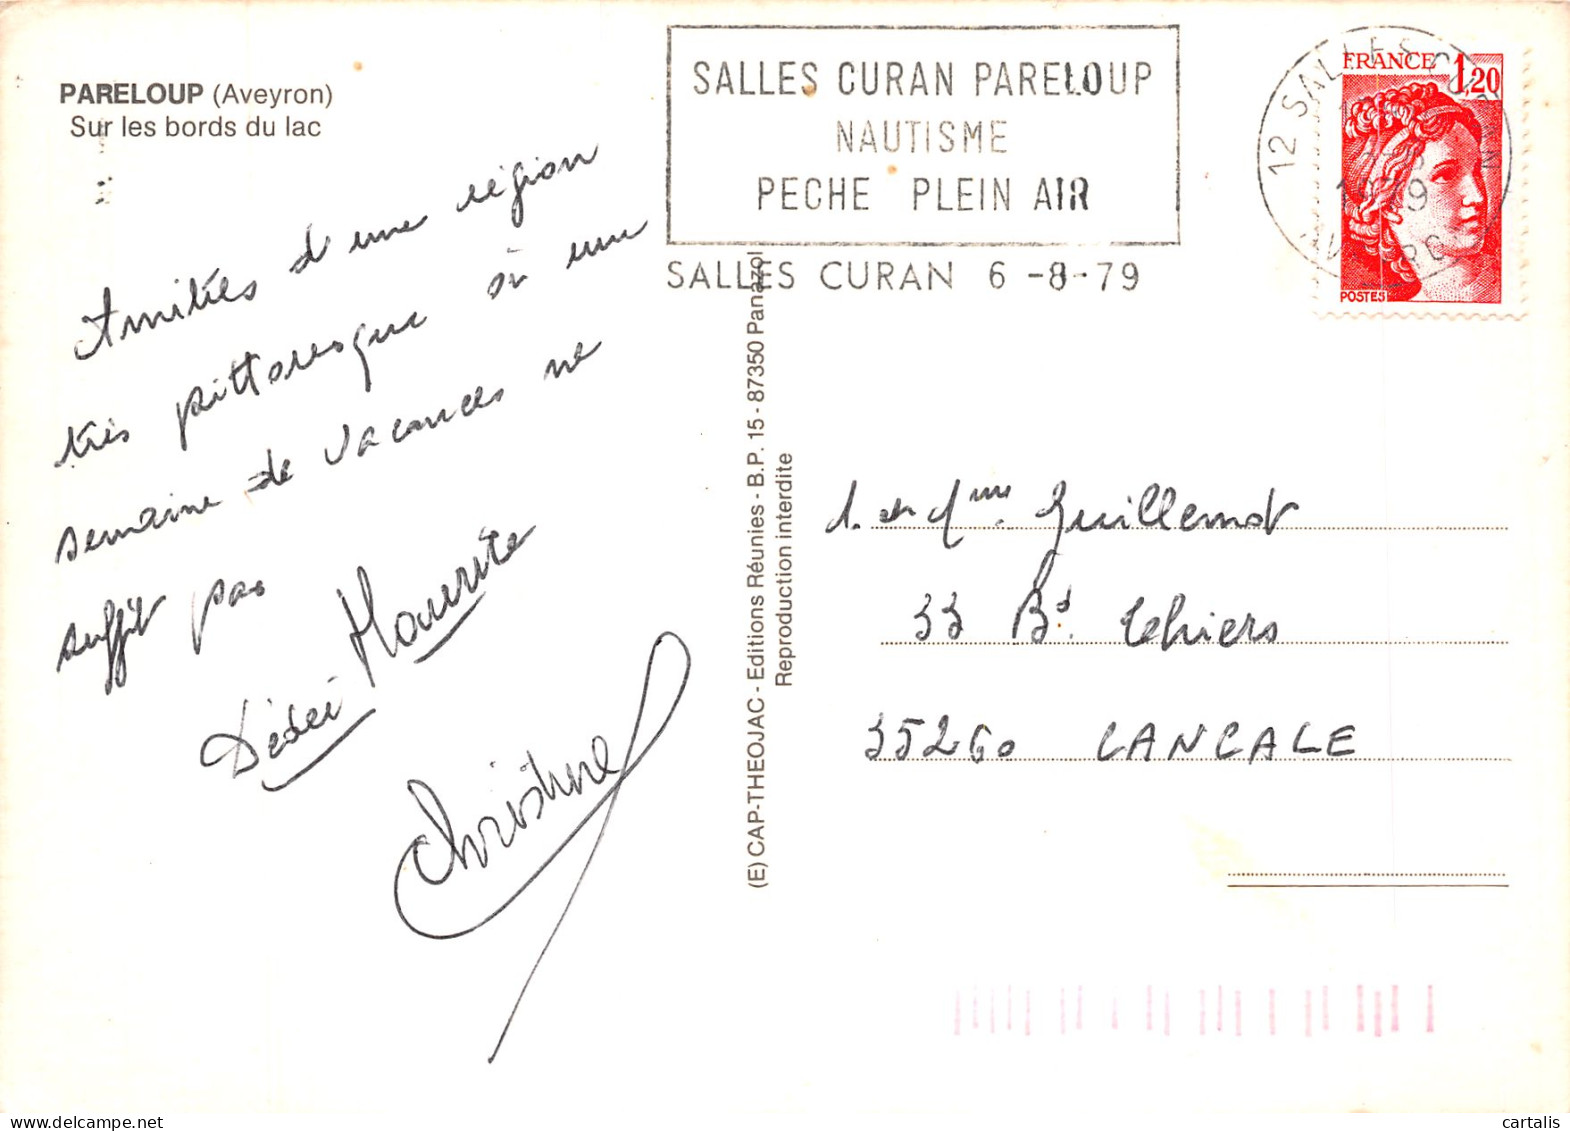 PARELOUP (Aveyron)
Sur les bords du lac
Amitiés d'une région
très pittoresque où une
semaine de vacances ne
suffit pas
Dédéi Maurice
Christine
SALLES CURAN PARELOUP
NAUTISME
PECHE PLEIN AIR
SALLES CURAN 6 -8-79
12 SALLES CURAN
1979
AVEYRON
FRANCE 1,20
POSTES
(E) CAP-THEOJAC - Editions Réunies - B.P. 15 - 87350 Panazol
Reproduction interdite
M. et Mme Guillemot
33 Bd. Thiers
35260 CANCALE
cartalis